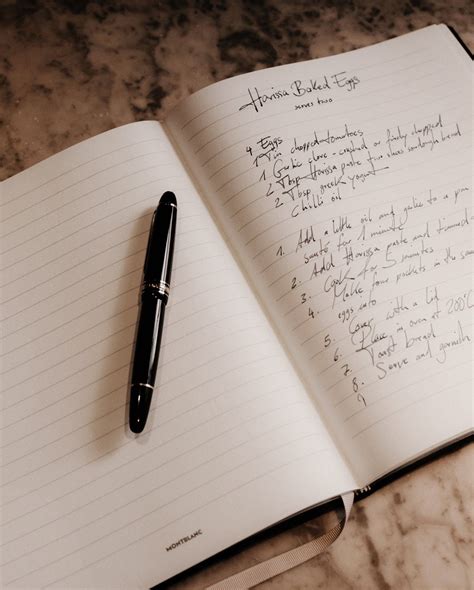 Harissa Baked Eggs
serves two
4 Eggs
1 Tin chopped tomatoes
1 Garlic clove - crushed or finely chopped
2 Tbsp Harissa paste four slices sourdough bread
2 Tbsp greek yogurt
Chilli oil
1. Add a little oil and garlic to a
sauté for 1 minute
2. Add Harissa paste and tinned
3. Cook for 5 minutes
4. Make four pockets in the
eggs into
5. Cover with a lid
6. Place in oven at 200°C
7. Toast bread
8. Serve and garnish
9
MONTBLANC